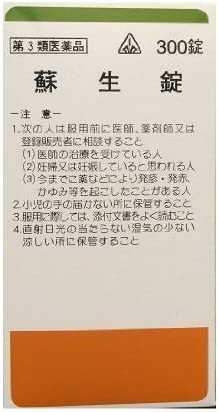 第3類医薬品 300錠
蘇生錠
―注 意―
1.次の人は服用前に医師、薬剤師又は
登録販売者に相談すること
(1)医師の治療を受けている人
(2)妊婦又は妊娠していると思われる人
(3)今までに薬などにより発疹・発赤、
かゆみ等を起こしたことがある人
2.小児の手の届かない所に保管すること
3.服用に際しては、添付文書をよく読むこと
4.直射日光の当たらない湿気の少ない
涼しい所に保管すること